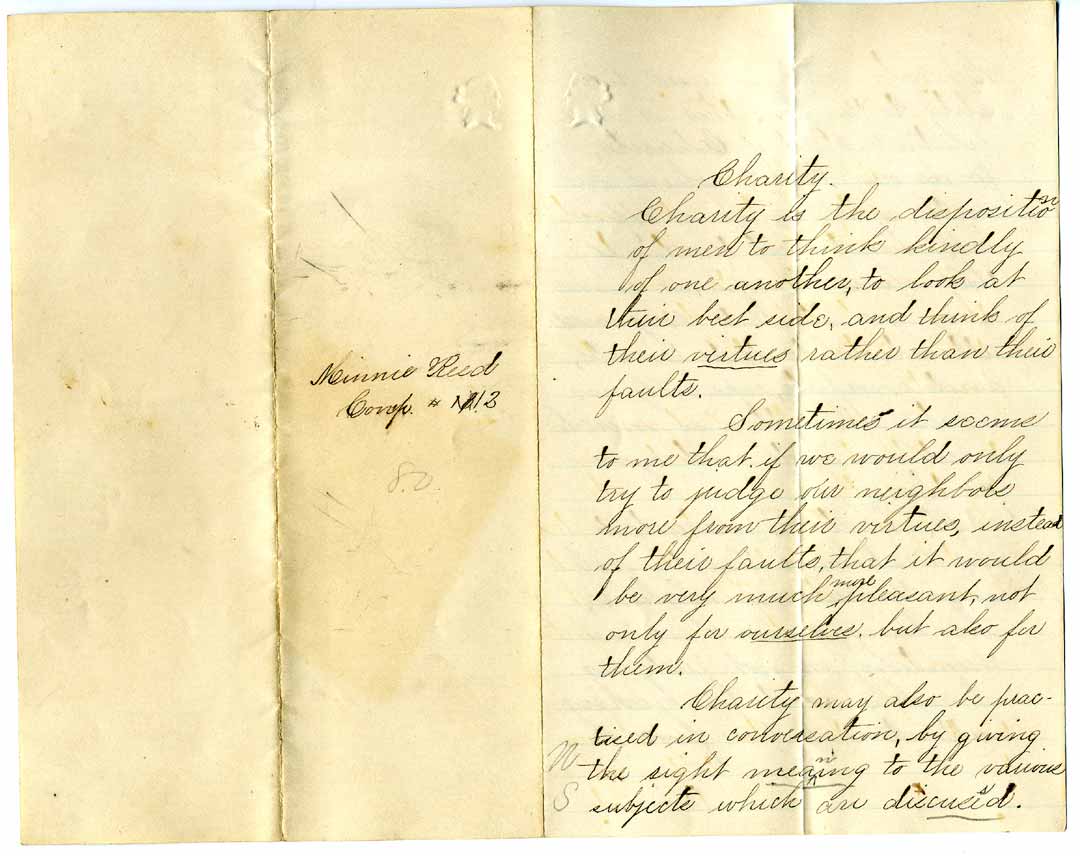 Minnie Reed
Comp. # 13
Charity.
Charity is the disposition
of men to think kindly
of one another, to look at
their best side, and think of
their virtues rather than their
faults.
Sometimes it seems
to me that if we would only
try to judge our neighbors
more from their virtues, instead
of their faults, that it would
be very much more pleasant, not
only for ourselves. but also for
them.
Charity may also be prac-
tised in conversation, by giving
N
the right meaning to the various
S
subjects which are discussed.